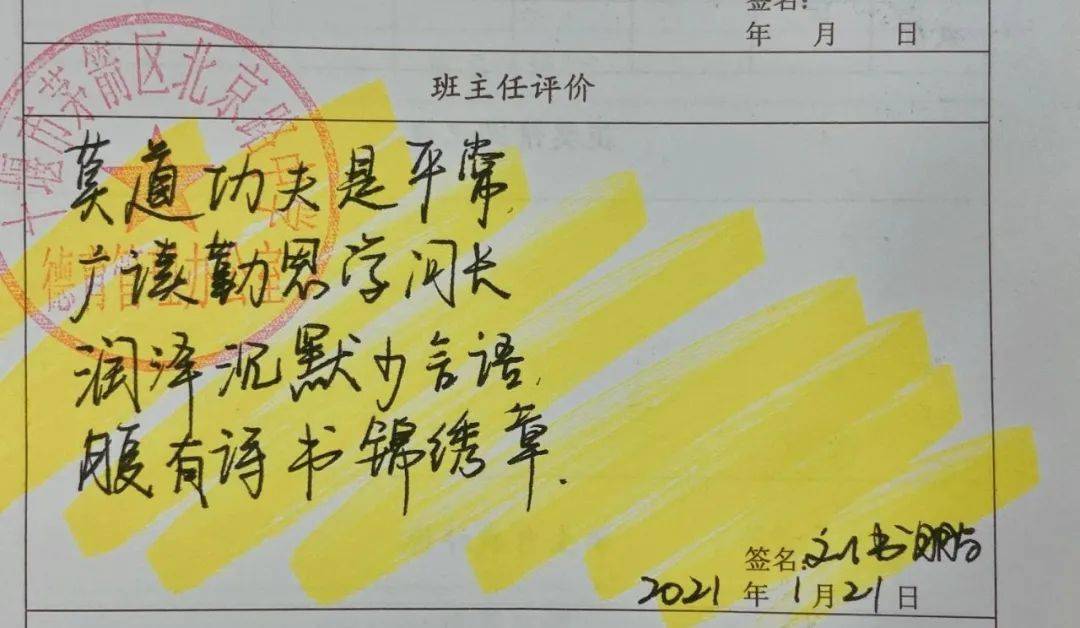 签名:
年 月 日
班主任评价
十堰市茅箭区北京路中学
德育管理办公室
莫道功夫是平常,
广读勤思学问长
润泽沉默少言语,
腹有诗书锦绣章.
签名:刘书鹏
2021年1月21日